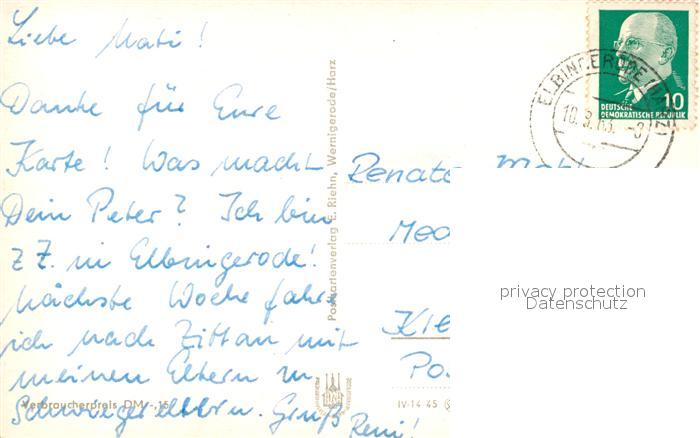 Liebe Mati!
Danke für Eure
Karte! Was macht
Dein Peter? Ich bin
z Z. in Elbingerode!
Nächste Woche fahre
ich nach Zittau mit
meinen Eltern u
Schwiegereltern. Gruß
Reni!
Verbraucherpreis DM -,15
Postkartenverlag E. Riehn, Wernigerode/Harz
IV-14-45
Renate
Med
Kle
Po
ELBINGERODE (HARZ)
10.9.63.-8
10
DEUTSCHE
DEMOKRATISCHE REPUBLIK
privacy protection
Datenschutz